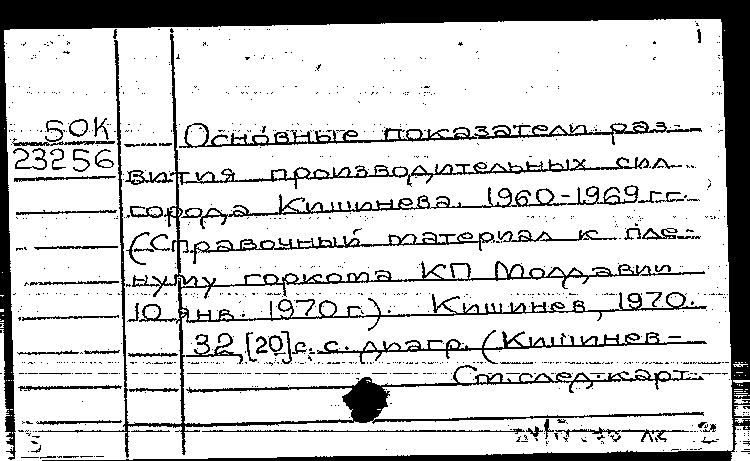 1
50К
23256
Основные показатели раз-
вития производительных сил
города Кишинева. 1960-1969 гг.
(Справочный материал к пле-
нуму горкома КП Молдавии
10 янв. 1970 г.). Кишинев, 1970.
32,[20]с. с. диагр. (Кишинев-
См. след. карт.
70 2